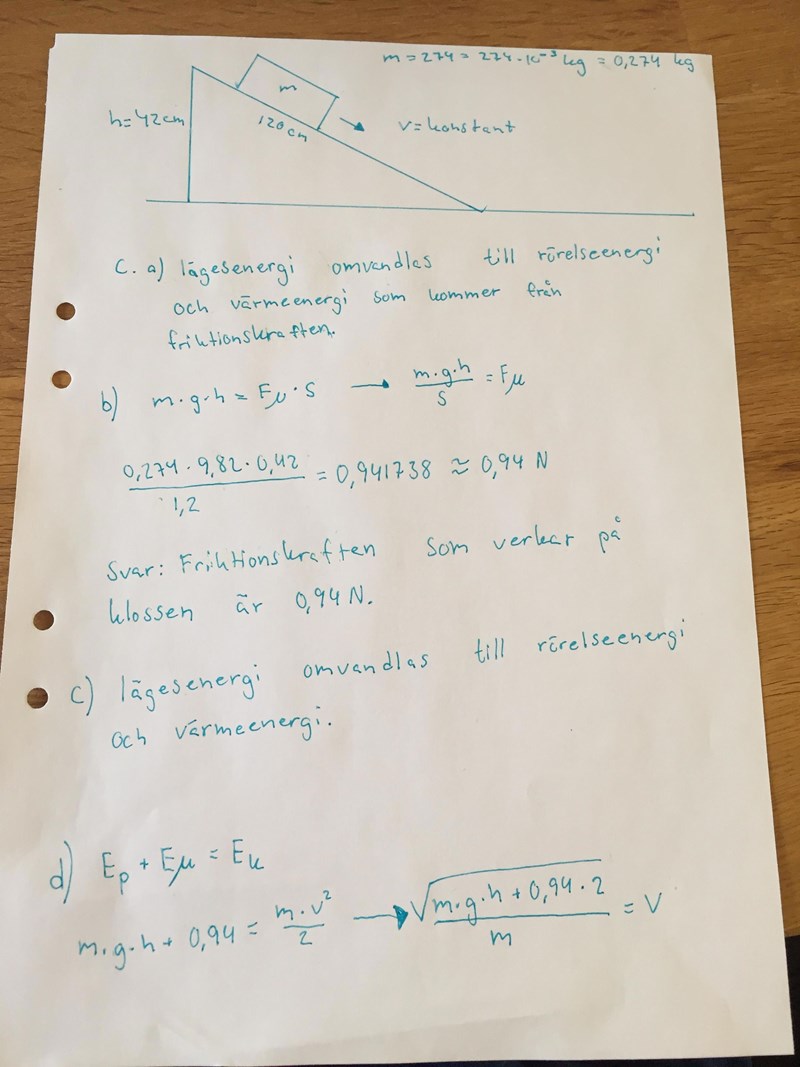 m = 274 = 274 · 10⁻³ kg = 0,274 kg
m
h = 42 cm
120 cm
v = konstant
C. a) lägesenergi omvandlas till rörelseenergi
och värmeenergi som kommer från
friktionskraften.
b) m·g·h = Fμ · S → m·g·h / S = Fμ
0,274 · 9,82 · 0,42 / 1,2 = 0,941738 ≈ 0,94 N
Svar: Friktionskraften som verkar på
klossen är 0,94 N.
c) lägesenergi omvandlas till rörelseenergi
och värmeenergi.
d) Ep + Eμ = Ek
m·g·h + 0,94 = m·v² / 2 → √(m·g·h + 0,94 · 2 / m) = V